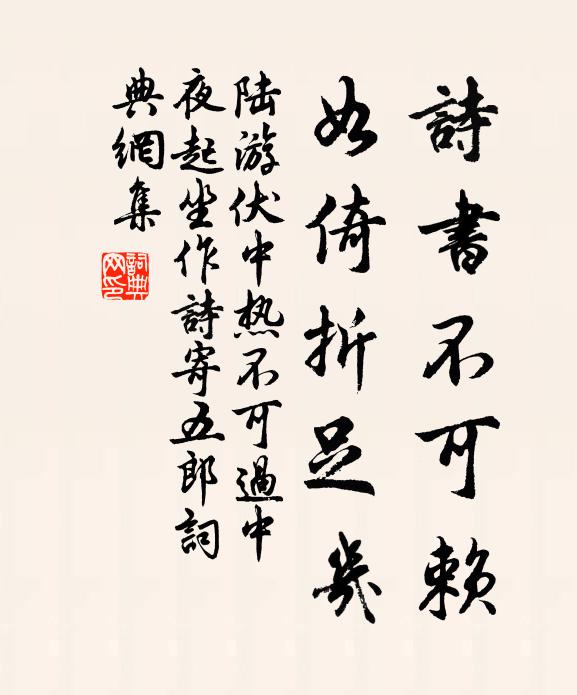 詩書不可賴
如倚折足几
陆游伏中热不可過中
夜起坐作詩寄五郎詞
典網集
詞典
网印